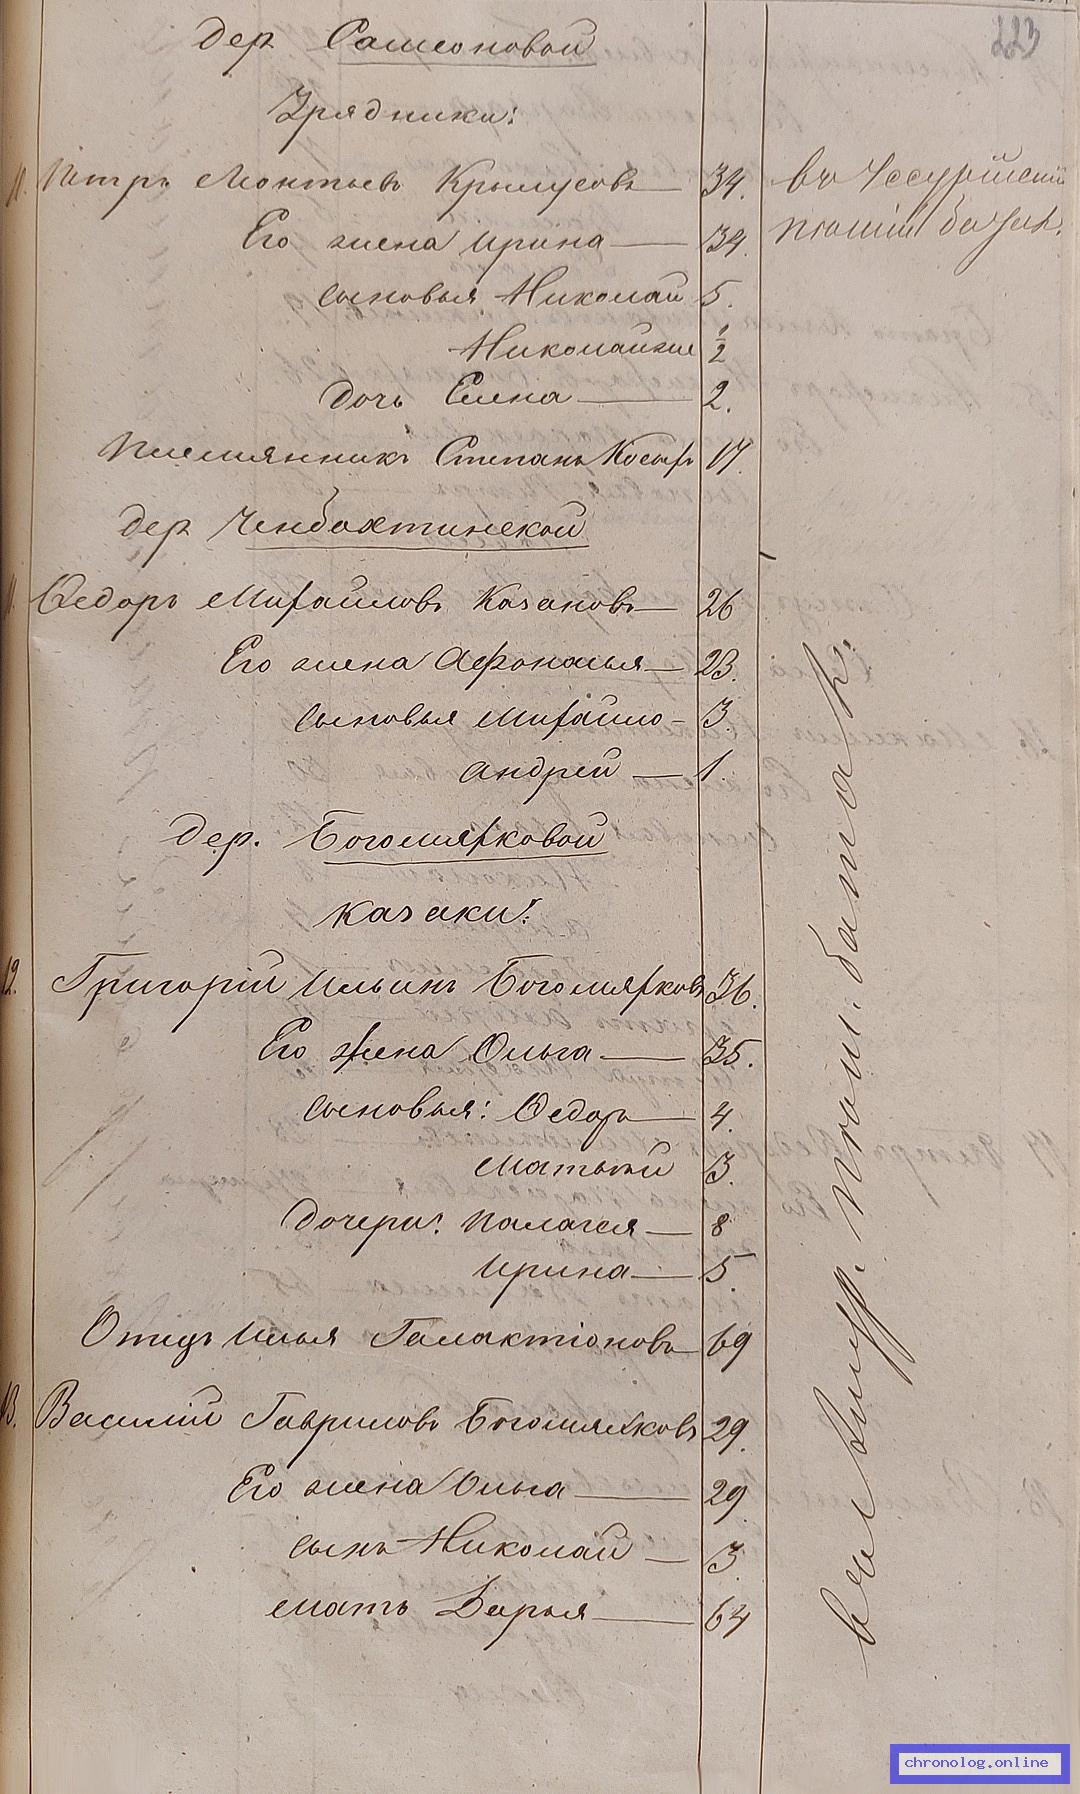 223
дер Самсоновой
Урядники:
11. Петръ Леонтьевъ Крылусовъ 34. въ Уссурійскій
Его жена Ирина 34. пѣшій батал.
сыновья Николай 5.
Николай же 1/2
дочь Елена 2.
Племянникъ Степанъ Косыръ 17.
дер Ченбохтинской
11. Ѳедоръ Михайловъ Казановъ 26
Его жена Афонасья 23.
сыновья Михайло - 3.
Андрей 1.
дер. Богомяхковой
Казаки:
12. Григорій Ильинъ Богомяхковъ 36.
Его жена Ольга 35.
сыновья: Ѳедоръ 4.
Матвѣй 3.
дочери: Палагея 8
Ирина 5.
Отецъ Илья Галактіоновъ 69
13. Василій Гавриловъ Богомяхковъ 29.
Его жена Ольга 29.
сынъ Николай 3.
мать Дарья 64
въ Амур. пѣш. баталь.
chronolog.online